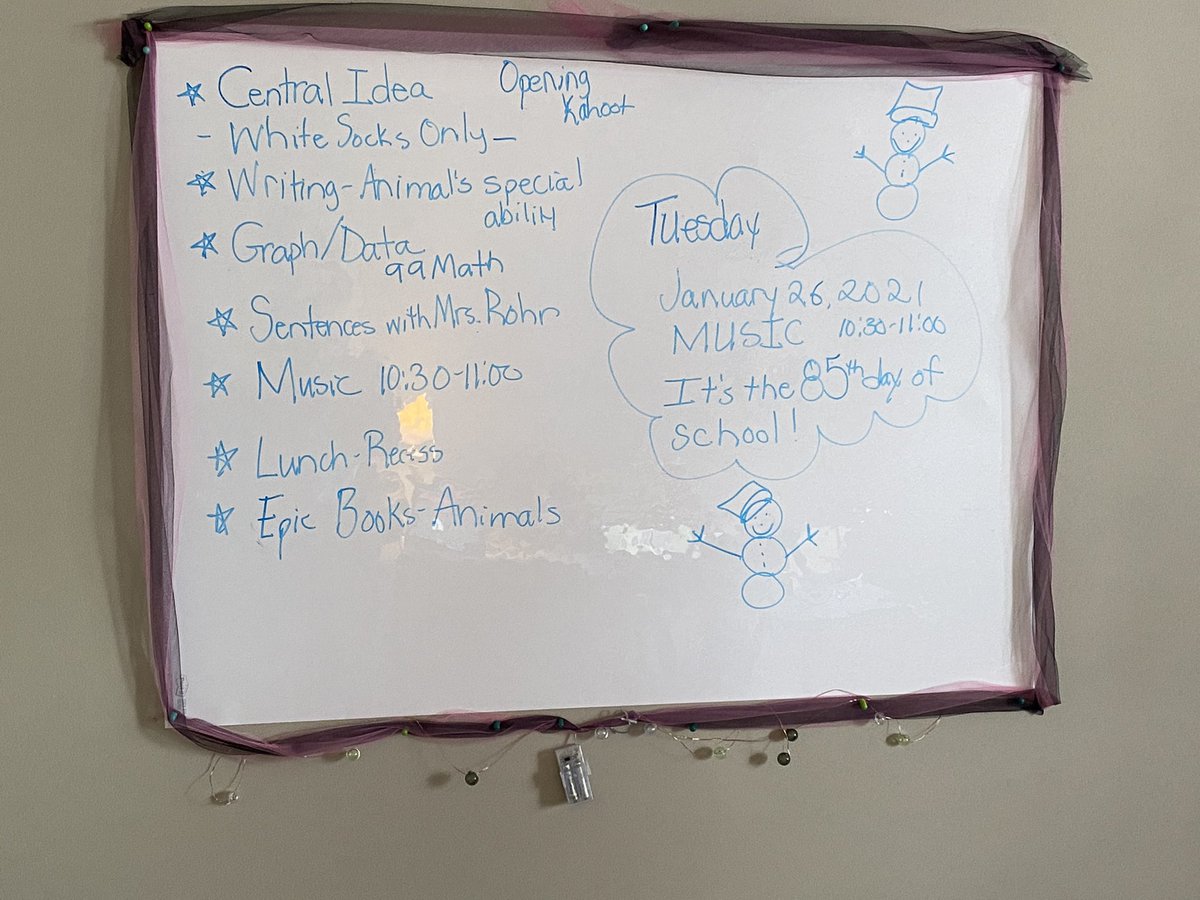 ☆ Central Idea
- White Socks Only -
☆ Writing - Animal's special
ability
☆ Graph/Data
99 Math
☆ Sentences with Mrs. Rohr
☆ Music 10:30-11:00
☆ Lunch - Recess
☆ Epic Books - Animals
Opening
Kahoot
Tuesday
January 26, 2021
MUSIC 10:30-11:00
It's the 85th day of
school!